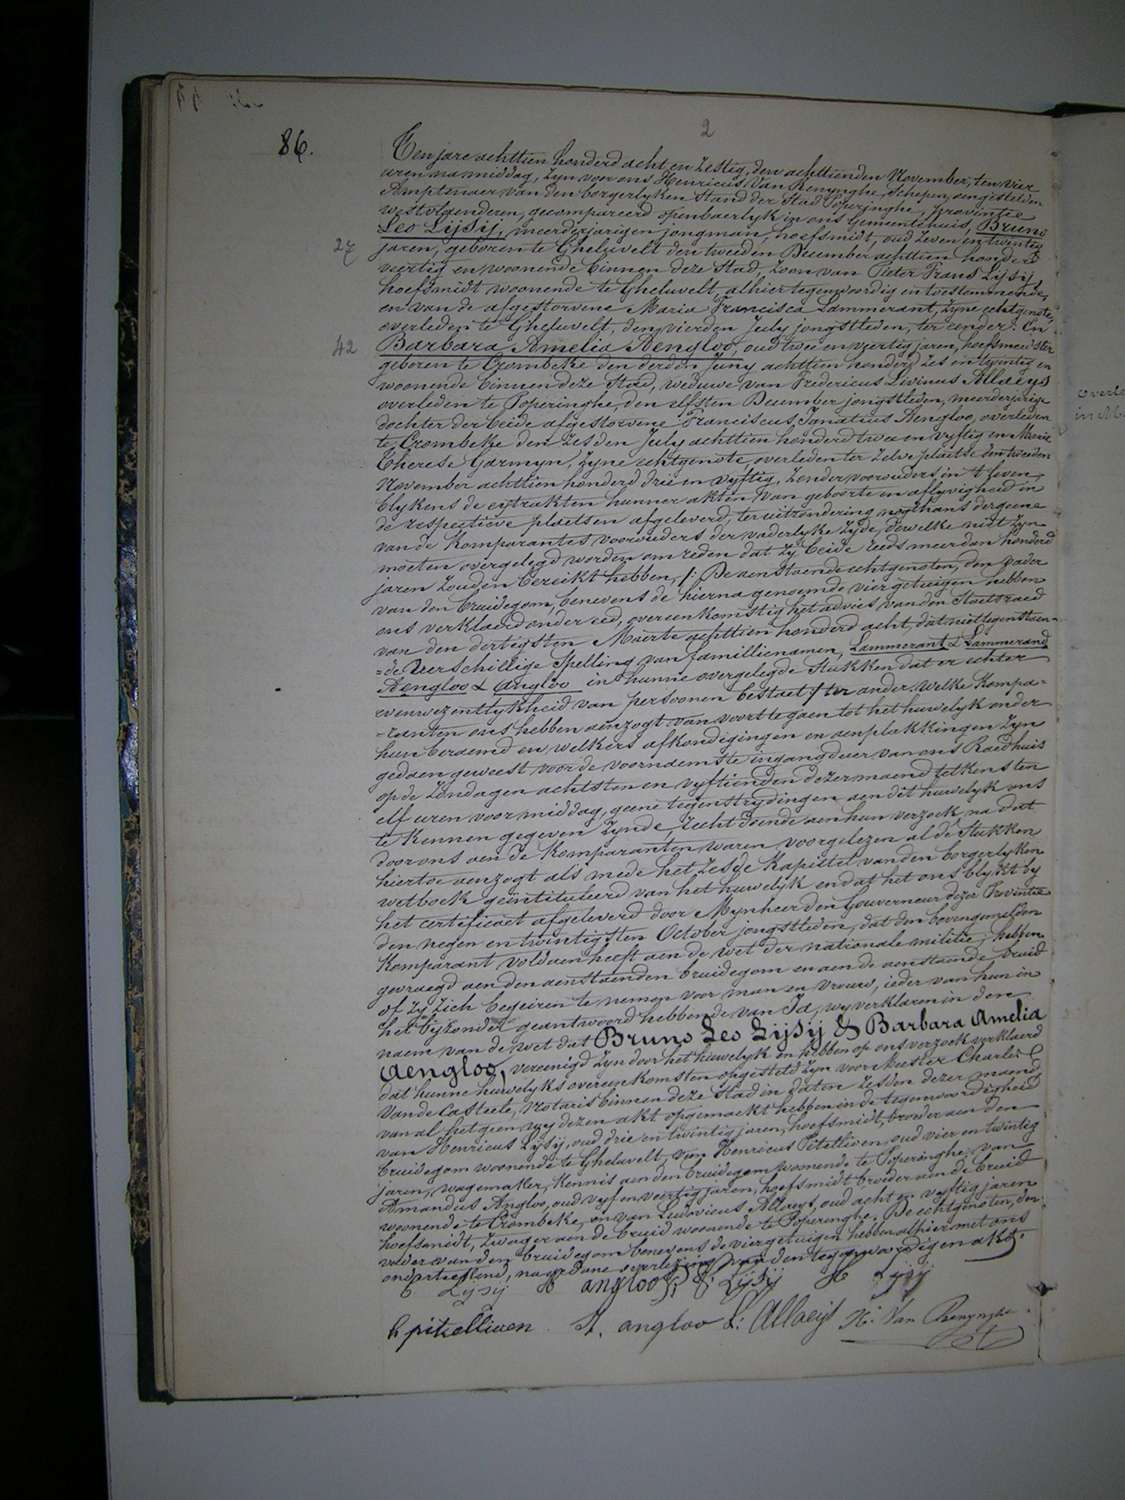 2
86.
Ten jare achttien honderd acht en zestig, den achttienden November, ten vier
uren namiddag, zyn voor ons Henricus Van Renynghe, Schepen, aengestelden
Amptenaer van den borgerlyken stand der Stad Poperinghe, provintie
westvlaenderen, gecompareerd openbaerlyk in ons Gemeentehuis, Bruno
Leo Lijsij, meerderjarigen jongman, hoefsmidt, oud zeven en twintig
27
jaren, geboren te Gheluvelt den tweeden December achttien honderd
veertig en woonende binnen deze Stad, zoon van Pieter Frans Lijsij
hoefsmidt woonende te Gheluvelt, alhier tegenwoordig en toestemmende,
en van de afgestorvene Maria Francisca Lammerant, zyne echtgenote,
overleden te Gheluvelt, den vierden July jongstleden, ter eender: En
42
Barbara Amelia Aengloo, oud twee en veertig jaren, hoefsmeedster
geboren te Crombeke den derden Juny achttien honderd zes en twintig en
woonende binnen deze Stad, weduwe van Fredericus Livinus Allaeys
overleden te Poperinghe, den elfsten December jongstleden, meerderjarige
dochter der beide afgestorvene Franciscus Ignatius Aengloo, overleden
te Crombeke den zesden July achttien honderd twee en vyftig en Marie
Therese Garmyn, zyne echtgenote overleden ter zelve plaetse den tweeden
November achttien honderd drie en vyftig, zonder voorouders in 't leven
blykens de extrakten hunner akten van geboorte en aflyvigheid in
de respectieve plaetsen afgeleverd, ter uitzondering nogthans dergeene
van de Komparantes voorouders der vaderlyke zyde, dewelke niet zyn
moeten overgelegd worden om reden dat zy beide reeds meer dan honderd
jaren zouden bereikt hebben, /: De aenstaende echtgenoten, den vader
van den bruidegom, benevens de hierna genoemde vier getuigen hebben
ons verklaerd onder eed, overeenkomstig het advies van den Staetsraed
van den dertigsten Maerte achttien honderd acht, dat niettegenstaen-
=de verschillige spelling van famillienamen, Lammerant & Lammerand
Aengloo & Angloo in hunne overgelegde stukken dat er echter
evenwezentlykheid van persoonen bestaet / ter ander. Welke Kompa-
=ranten ons hebben aenzogt van voort te gaen tot het huwelyk onder
hun beraemd en welkers afkondigingen en aenplakkingen zyn
gedaen geweest voor de voornaemste ingangdeur van ons Raedhuis
op de Zondagen achtsten en vyftienden dezer maend telkens ten
elf uren voormiddag, geene tegenstrydingen aen dit huwelyk ons
te kennen gegeven zynde, recht doende aen hun verzoek, na dat
door ons aen de Komparanten waren voorgelezen al de Stukken
hiertoe aenzogt als mede het zesde Kapittel van den borgerlyken
wetboek geïntituleerd van het huwelyk en dat het ons blykt by
het certificaet afgeleverd door Mynheer den Gouverneur dezer Provintie
den negen en twintigsten October jongstleden, dat den bovengemelden
Komparant voldaen heeft aen de wet der nationale militie, hebben
gevraegd aen den aenstaenden bruidegom en aen de aenstaende bruid
of zy zich begeiren te nemen voor man en vrouw, ieder van hun in
het byzonder geantwoord hebbende van Ja, wy verklaren in den
naem van de wet dat Bruno Leo Lijsij & Barbara Amelia
Aengloo, vereenigd zyn door het huwelyk en hebben op ons verzoek verklaerd
dat hunne huwelyks overeenkomsten opgesteld zyn voor Meester Charles
Van de Casteele, Notaris binnen deze Stad in daten zesden dezer maend
van al hetgeen wy dezen akt opgemaekt hebben in de tegenwoordigheid
van Henricus Lijsij, oud drie en twintig jaren, hoefsmidt, broeder aen den
bruidegom woonende te Gheluvelt, van Henricus Pitellioen, oud vier en twintig
jaren, wagemaker, kennis aen den bruidegom woonende te Poperinghe, van
Amandus Angloo, oud vyf en veertig jaren, hoefsmidt broeder aen de bruid
woonende te Crombeke, en van Ludovicus Allaeys, oud acht en vyftig jaren
hoefsmidt, zwager aen de bruid woonende te Poperinghe. De echtgenoten, den
vader van den bruidegom benevens de vier getuigen hebben alhier met ons
onderteekend, na gedane voorlezing van den tegenwoordigen akt.
Lijsij B angloo Lijsij H Lijsij
h pitellioen A. angloo L: Allaeys H: Van Renynghe